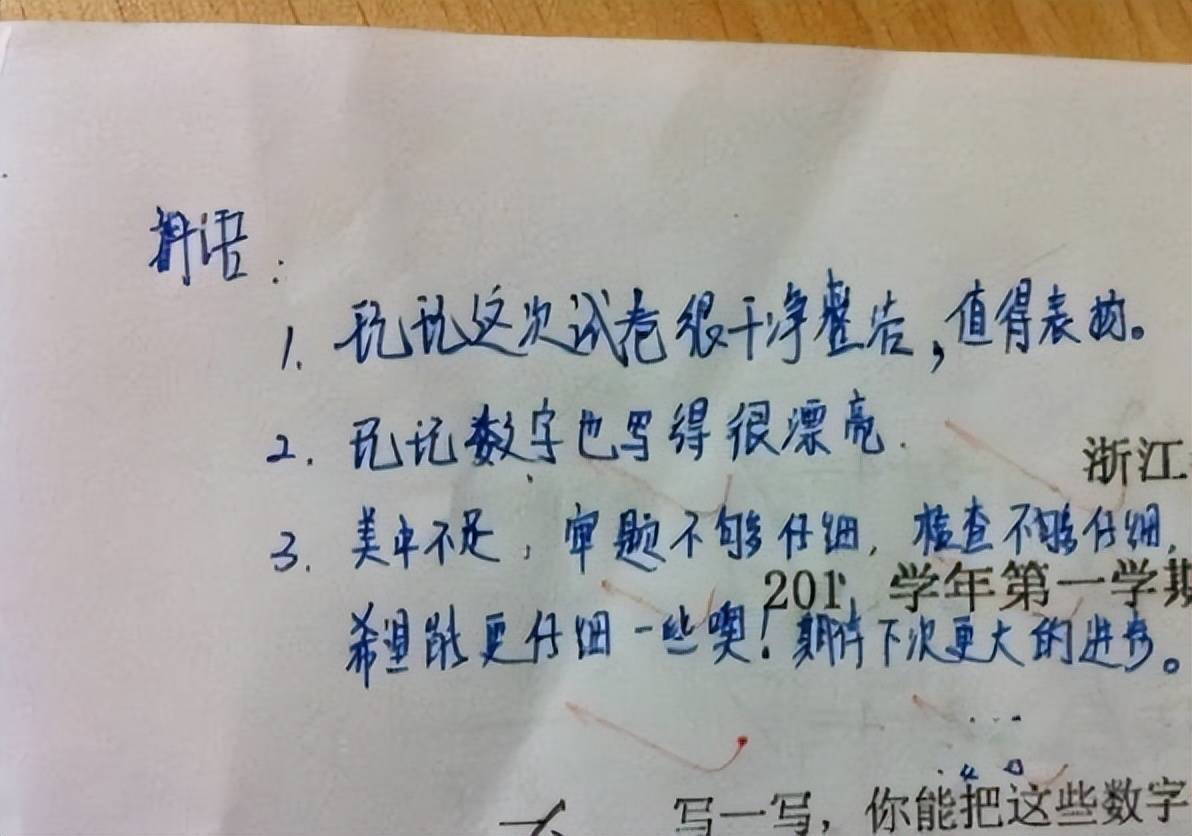 评语:
1. 玩玩这次试卷很干净整洁,值得表扬。
2. 玩玩数字也写得很漂亮.
浙江
3. 美中不足,审题不够仔细,检查不够仔细,
201 学年第一学期
希望能更仔细一些噢!期待下次更大的进步。
写一写,你能把这些数字